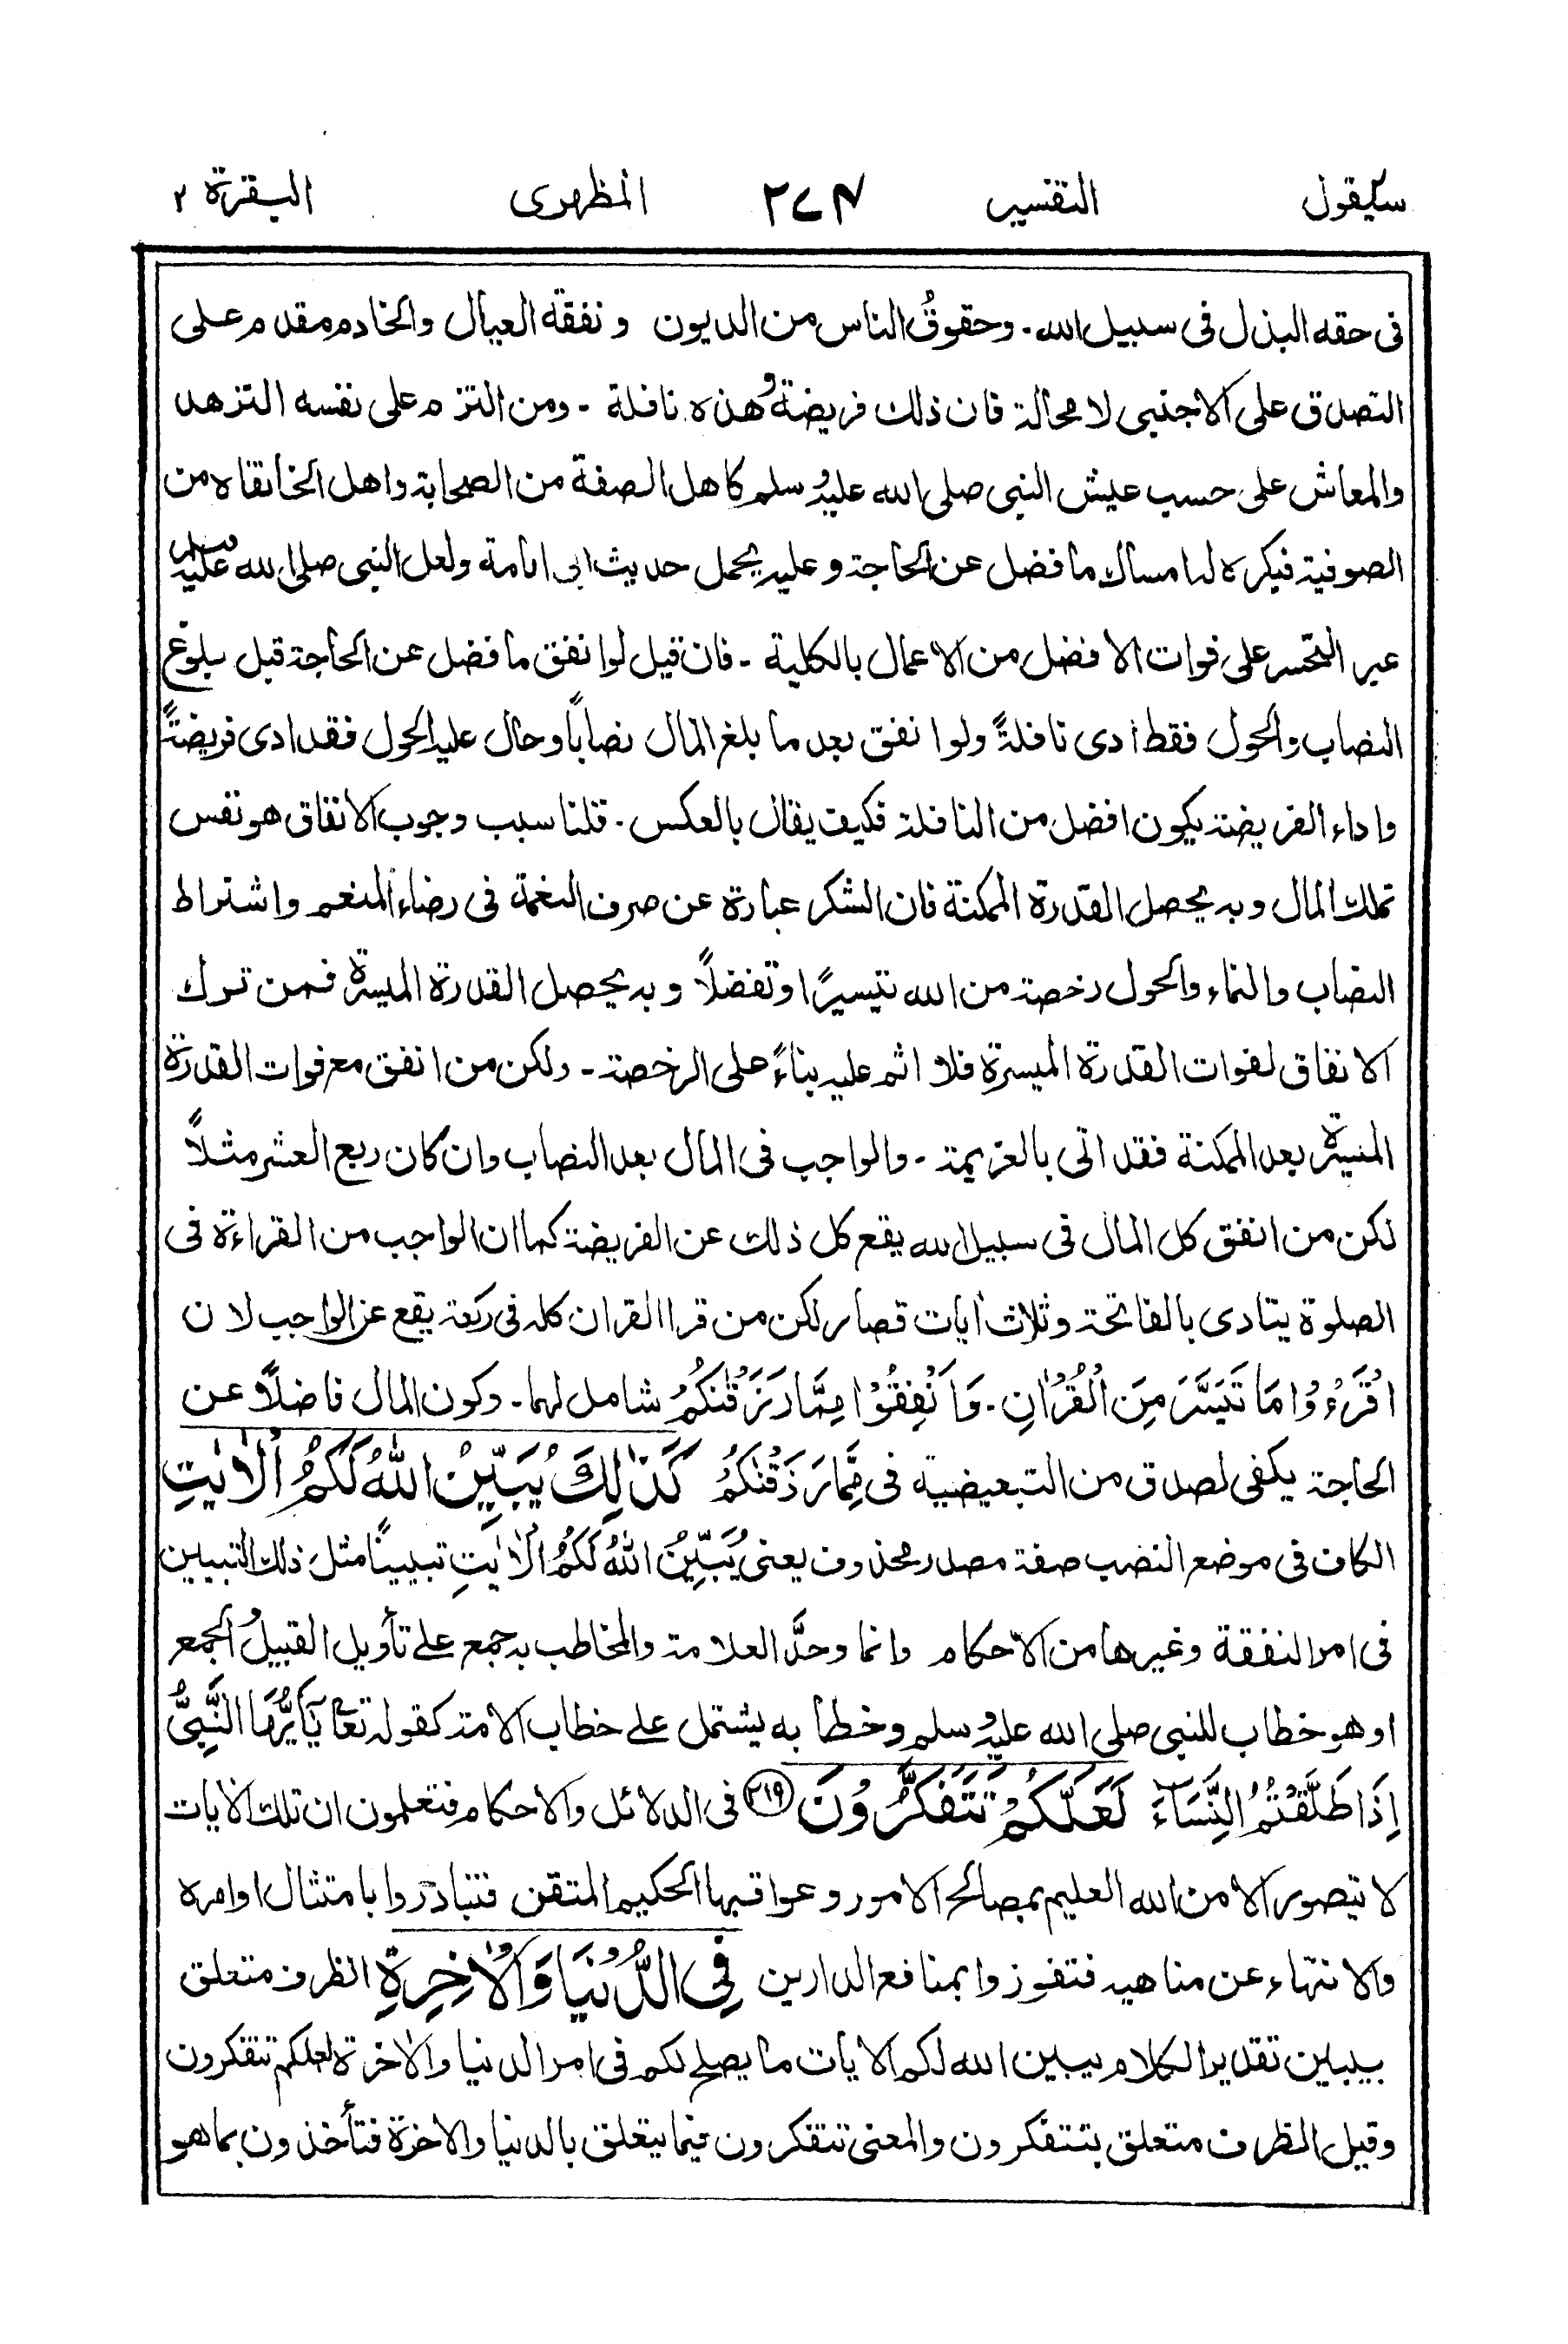 سيقول التفسير ٢٧٤ المظهرى البقرة ٢
فى حقه البذل فى سبيل الله - وحقوق الناس من الديون ونفقة العيال والخادم مقدم على
التصدق على الاجنبى لا محالة فان ذلك فريضة وهذه نافلة - ومن التزم على نفسه التزهد
والمعاش على حسب عيش النبى صلى الله عليه وسلم كاهل الصفة من الصحابة واهل الخانقاه من
الصوفية فيكره له امساك ما فضل عن الحاجة وعليه يحمل حديث ابى امامة ولعل النبى صلى الله عليه وسلم
عير التحسر على فوات الافضل من الاعمال بالكلية - فان قيل لو انفق ما فضل عن الحاجة قبل بلوغ
النصاب والحول فقط أدى نافلةً ولو انفق بعد ما بلغ المال نصاباً وحال عليه الحول فقد ادى فريضةً
واداء الفريضة يكون افضل من النافلة فكيف يقال بالعكس - قلنا سبب وجوب الانفاق هو نفس
تملك المال وبه يحصل القدرة الممكنة فان الشكر عبارة عن صرف النعمة فى رضاء المنعم واشتراط
النصاب والنماء والحول رخصة من الله تيسيرًا وتفضلاً وبه يحصل القدرة الميسرة فمن ترك
الانفاق لفوات القدرة الميسرة فلا اثم عليه بناءً على الرخصة - ولكن من انفق مع فوات القدرة
الميسرة بعد الممكنة فقد اتى بالعزيمة - والواجب فى المال بعد النصاب وان كان ربع العشر مثلاً
لكن من انفق كل المال فى سبيل الله يقع كل ذلك عن الفريضة كما ان الواجب من القراءة فى
الصلوة يتادى بالفاتحة وثلاث أيات قصار لكن من قرا القران كله فى ركعة يقع عن الواجب لان
اقْرَءُوْا مَا تَيَسَّرَ مِنَ الْقُرْاٰنِ - وَاَنْفِقُوْا مِمَّا رَزَقْنٰكُمْ شامل لهما - وكون المال فاضلاً عن
الحاجة يكفى لصدق من التبعيضية فى مِمَّا رَزَقْنٰكُمْ كَذٰلِكَ يُبَيِّنُ اللّٰهُ لَكُمُ الْاٰيٰتِ
الكاف فى موضع النصب صفة مصدر محذوف يعنى يُبَيِّنُ اللّٰهُ لَكُمُ الْاٰيٰتِ تبيينًا مثل ذلك التبيين
فى امر النفقة وغيرها من الاحكام وانما وحدَّ العلامة والمخاطب به جمع على تأويل القبيل والجمع
او هو خطاب للنبى صلى الله عليه وسلم وخطابه يشتمل على خطاب الامة كقوله تعالى يٰاَيُّهَا النَّبِىُّ
اِذَا طَلَّقْتُمُ النِّسَآءَ لَعَلَّكُمْ تَتَفَكَّرُوْنَ ﴿٢١٩﴾ فى الدلائل والاحكام فتعلمون ان تلك الأيات
لا تتصور الا من الله العليم بمصالح الامور وعواقبها الحكيم المتقن فتبادروا بامتثال اوامره
والانتهاء عن مناهيه فتفوزوا بمنافع الدارين فِى الدُّنْيَا وَالْاٰخِرَةِ الظرف متعلق
بيبين تقدير الكلام يبين الله لكم الايات ما يصلح لكم فى امر الدنيا والاخرة لعلكم تتفكرون
وقيل الظرف متعلق بتتفكرون والمعنى تتفكرون فيما يتعلق بالدنيا والاخرة فتأخذون بما هو